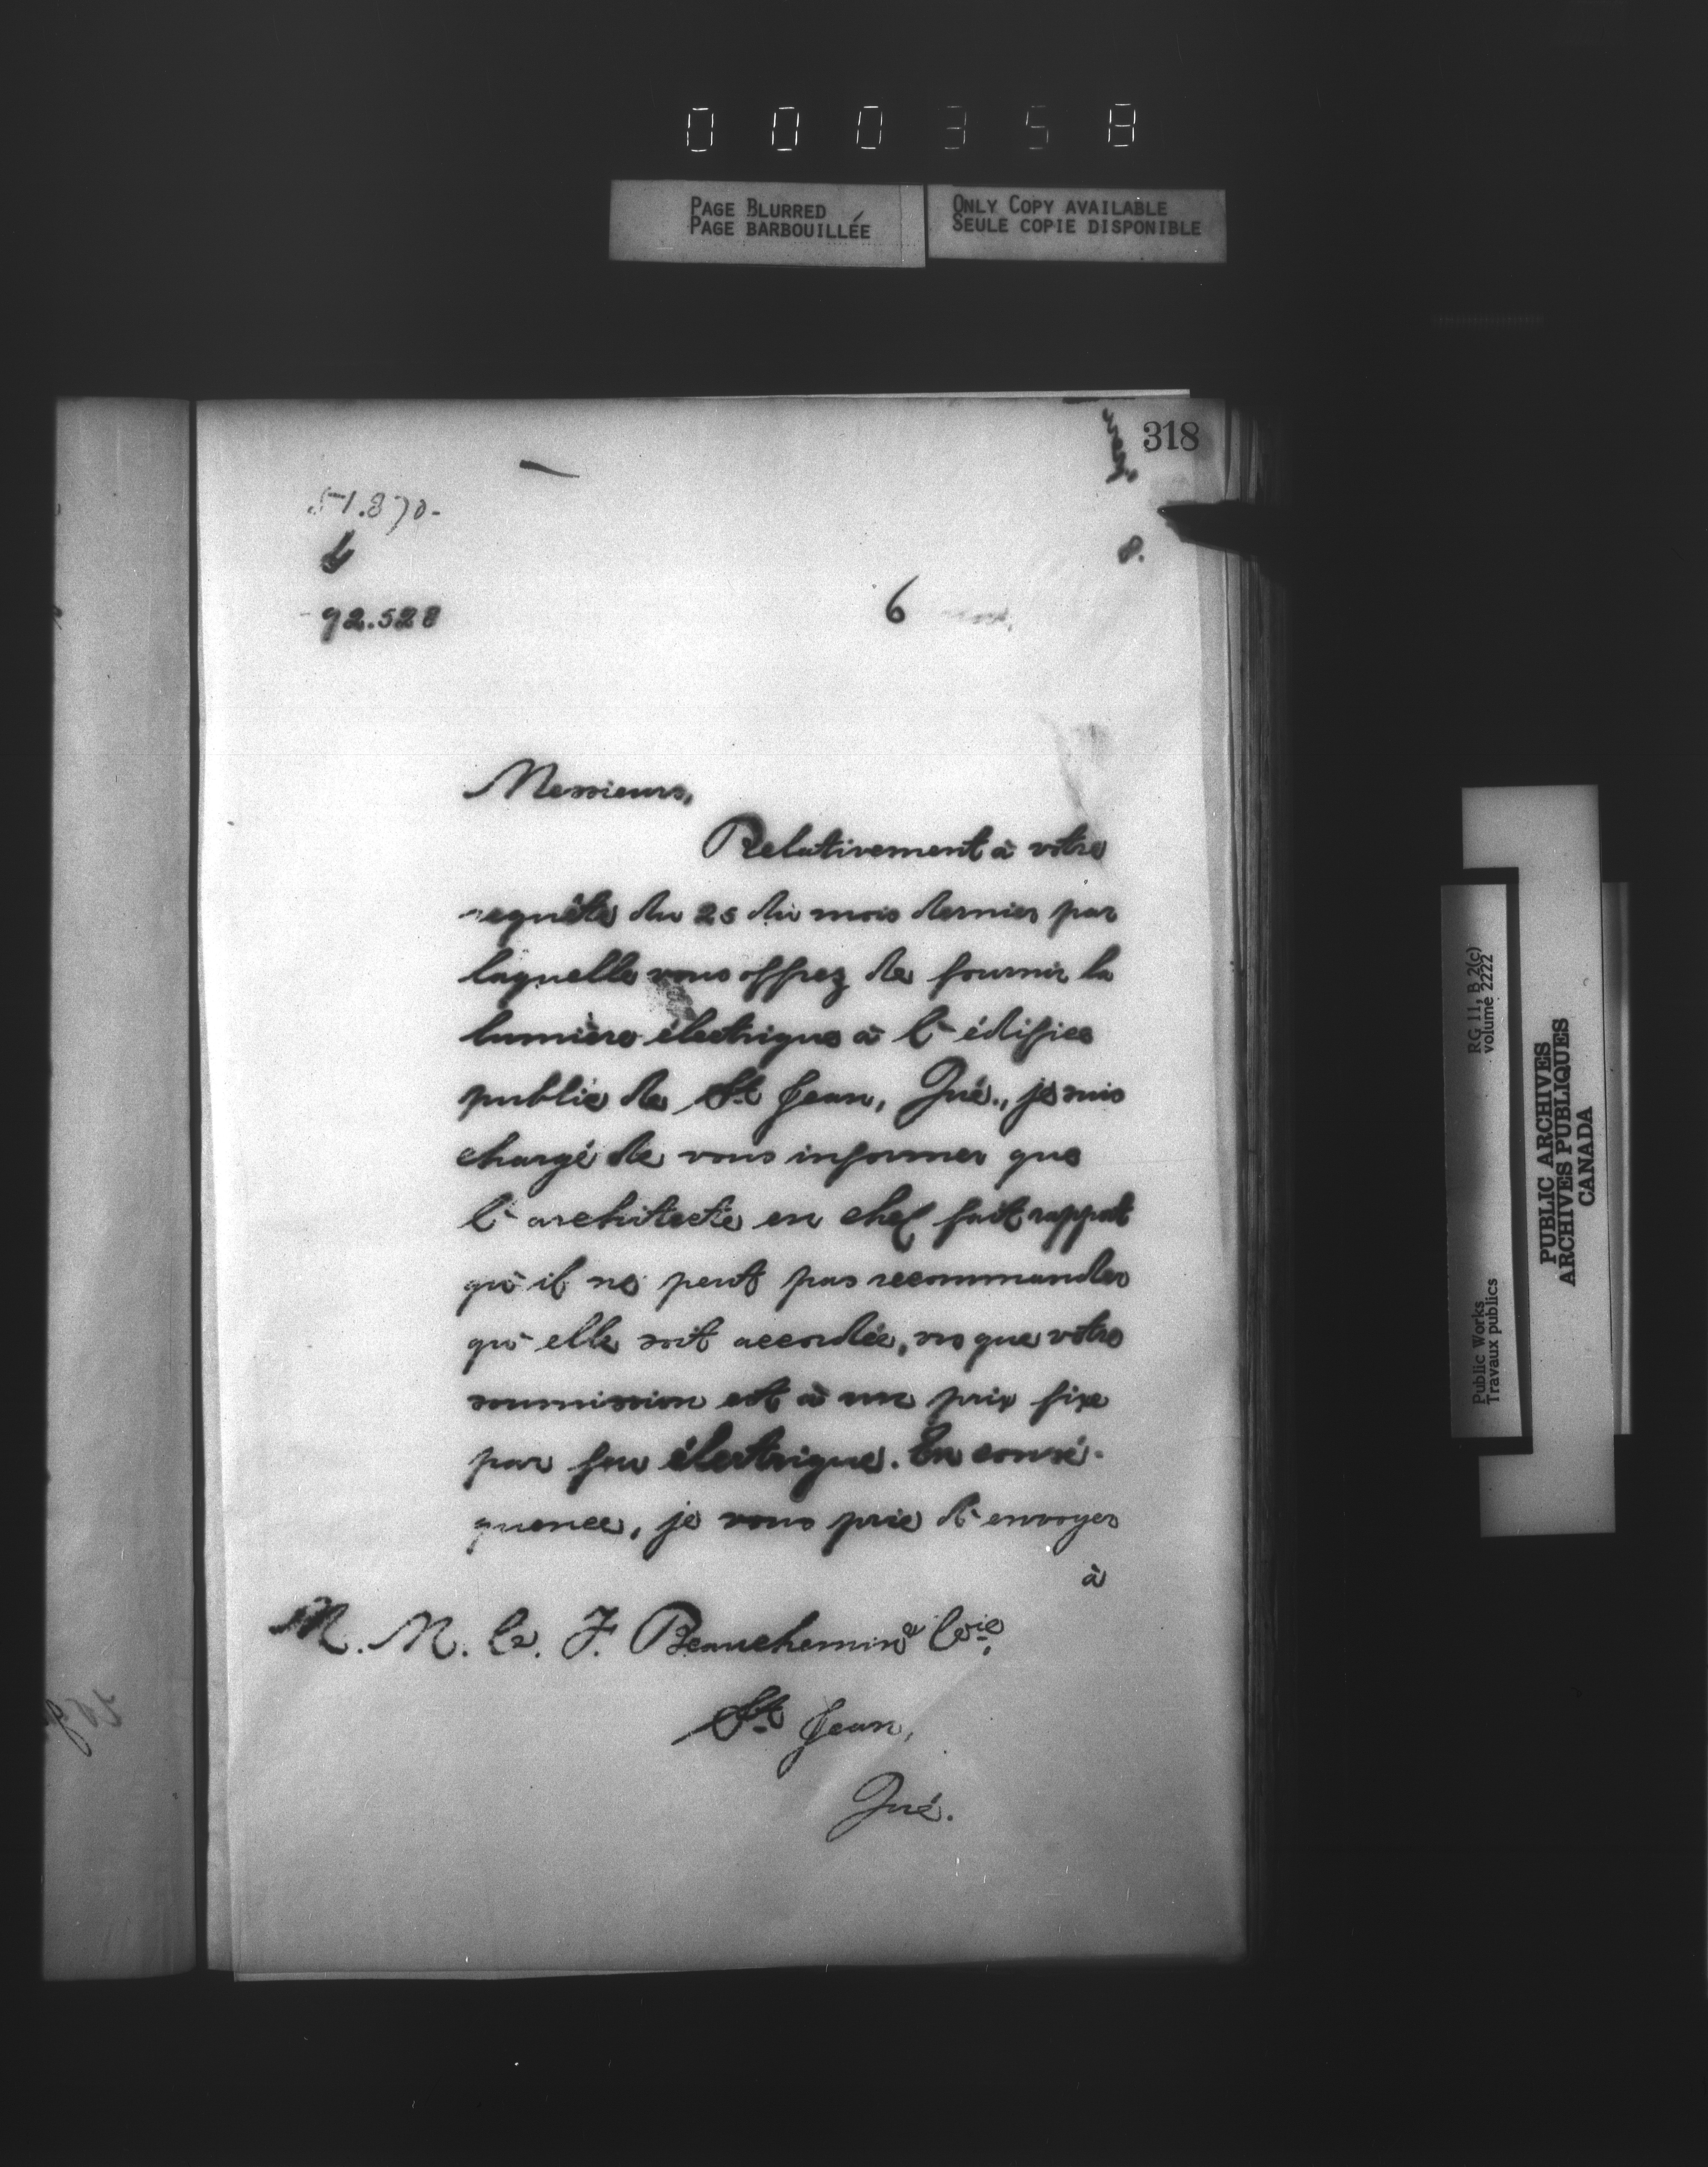 000358
PAGE BLURRED
PAGE BARBOUILLÉE
ONLY COPY AVAILABLE
SEULE COPIE DISPONIBLE
318
51.870-
92.528
6
Messieurs,
Relativement à votre
requête du 25 du mois dernier par
laquelle vous offrez de fournir la
lumière électrique à l'édifice
public de St Jean, Qué., je suis
chargé de vous informer que
l'architecte en chef fait rapport
qu'il ne peut pas recommander
qu'elle soit accordée, vu que votre
soumission est à un prix fixe
par feu électrique. En consé-
quence, je vous prie d'envoyer
à
M. M. C. F. Beauchemin & Cie,
St Jean,
Qué.
RG 11, B 2(c)
volume 2222
Public Works
Travaux publics
PUBLIC ARCHIVES
ARCHIVES PUBLIQUES
CANADA